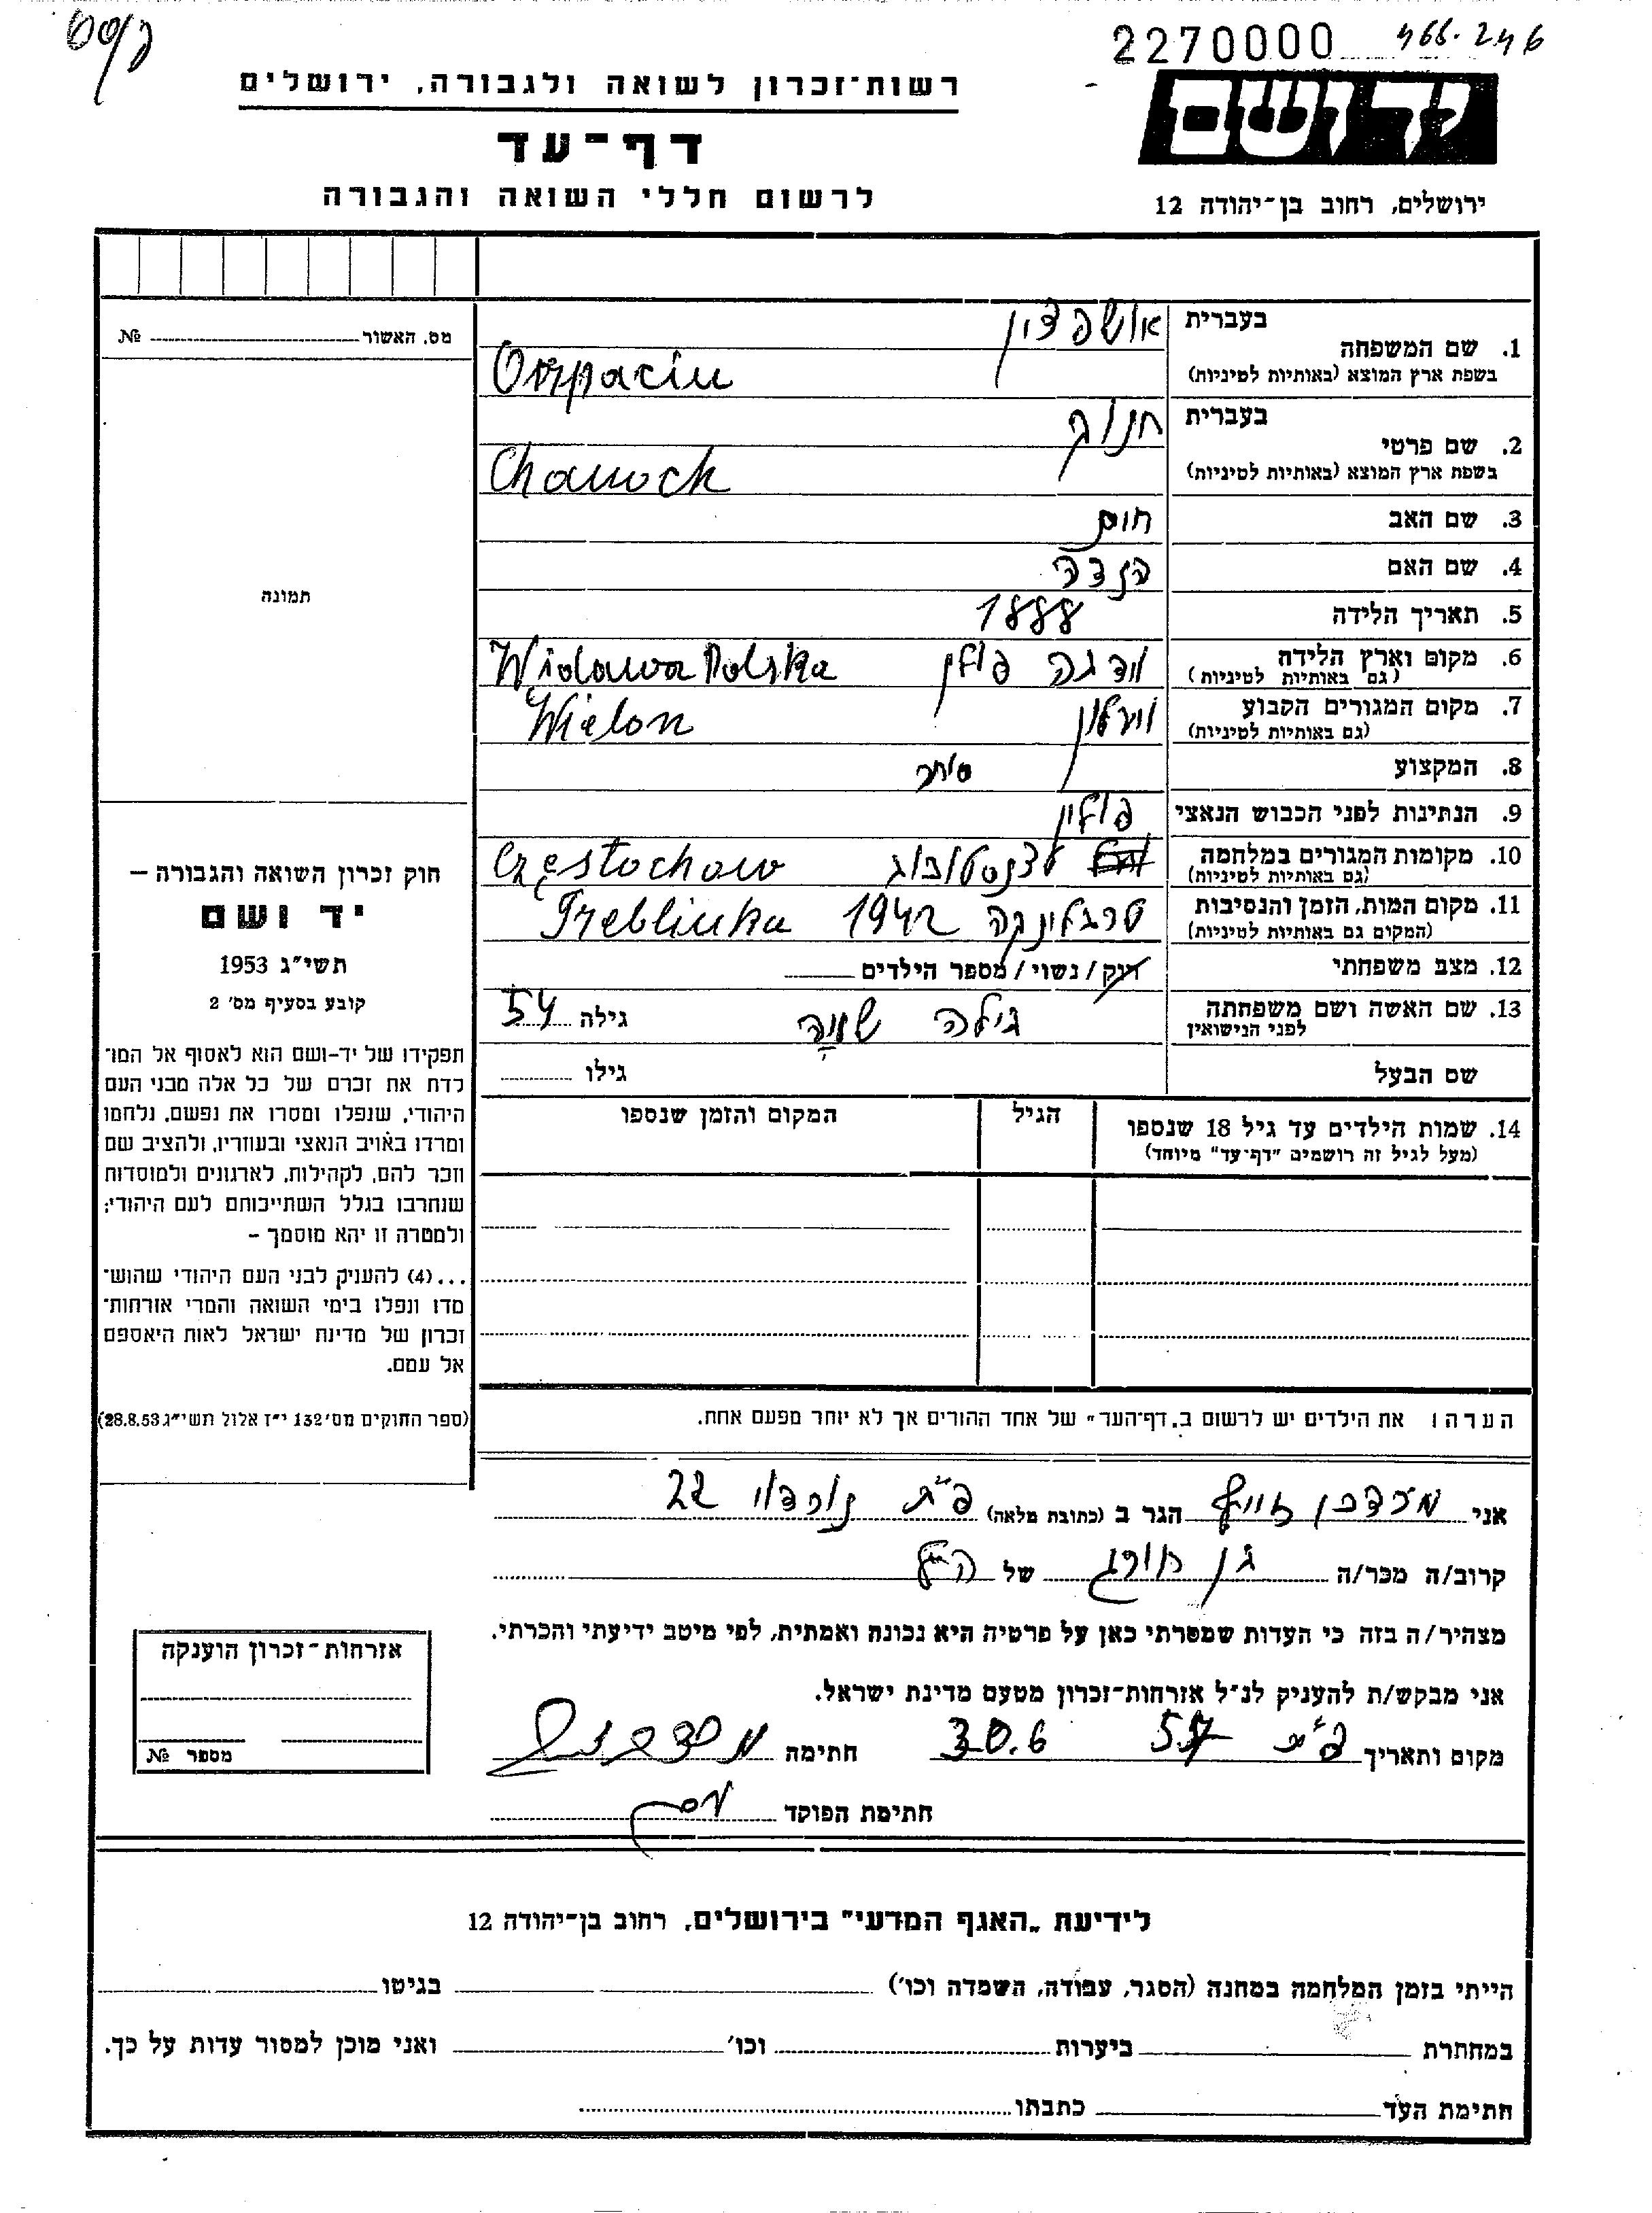 2270000 466.246
רשות־זכרון לשואה ולגבורה, ירושלים
יד ושם
דף־עד
לרשום חללי השואה והגבורה
ירושלים, רחוב בן־יהודה 12
1. שם המשפחה
בעברית
אושפצין
בשפת ארץ המוצא (באותיות לטיניות)
Oszpacin
2. שם פרטי
בעברית
חנוך
בשפת ארץ המוצא (באותיות לטיניות)
Chanoch
3. שם האב
חיים
4. שם האם
הנדה
5. תאריך הלידה
1888
6. מקום וארץ הלידה
(גם באותיות לטיניות)
פולין Widawa Polska
7. מקום המגורים הקבוע
(גם באותיות לטיניות)
ווילון Wielon
8. המקצוע
סוחר
9. הנתינות לפני הכבוש הנאצי
פולין
10. מקומות המגורים במלחמה
(גם באותיות לטיניות)
צ'נסטוכוב Częstochow
11. מקום המות, הזמן והנסיבות
(המקום גם באותיות לטיניות)
טרבלינקה 1942 Treblinka
12. מצב משפחתי
רוק / נשוי / מספר הילדים
13. שם האשה ושם משפחתה
לפני הנישואין
גילה
גילה 54
שם הבעל
גילו
14. שמות הילדים עד גיל 18 שנספו
(מעל לגיל זה רושמים "דף־עד" מיוחד)
הגיל
המקום והזמן שנספו
הערה: את הילדים יש לרשום ב„דף־העד" של אחד ההורים אך לא יותר מפעם אחת.
מס. האשור № 
תמונה
חוק זכרון השואה והגבורה –
יד ושם
תשי״ג 1953
קובע בסעיף מס׳ 2
תפקידו של יד-ושם הוא לאסוף אל המו־
לדת את זכרם של כל אלה מבני העם
היהודי, שנפלו ומסרו את נפשם, נלחמו
ומרדו באויב הנאצי ובעוזריו, ולהציב שם
וזכר להם, לקהילות, לארגונים ולמוסדות
שנחרבו בגלל השתייכותם לעם היהודי;
ולמטרה זו יהא מוסמך –
...(4) להעניק לבני העם היהודי שהוש־
מדו ונפלו בימי השואה והמרי אזרחות־
זכרון של מדינת ישראל לאות היאספם
אל עמם.
(ספר החוקים מס׳ 132 י״ז אלול תשי״ג 28.8.53)
אני זייף הגר ב (כתובת מלאה) פ״ת נורדוי 22
קרוב/ה מכר/ה בן של הנ״ל
מצהיר/ה בזה כי העדות שמסרתי כאן על פרטיה היא נכונה ואמתית, לפי מיטב ידיעתי והכרתי.
אני מבקש/ת להעניק לנ״ל אזרחות־זכרון מטעם מדינת ישראל.
מקום ותאריך פ״ת 57 30.6 חתימה
חתימת הפוקד
אזרחות־זכרון הוענקה
מספר №
לידיעת „האגף המדעי" בירושלים, רחוב בן־יהודה 12
הייתי בזמן המלחמה במחנה (הסגר, עבודה, השמדה וכו׳) בגיטו
במחתרת ביערות וכו׳ ואני מוכן למסור עדות על כך.
חתימת העד כתבתו